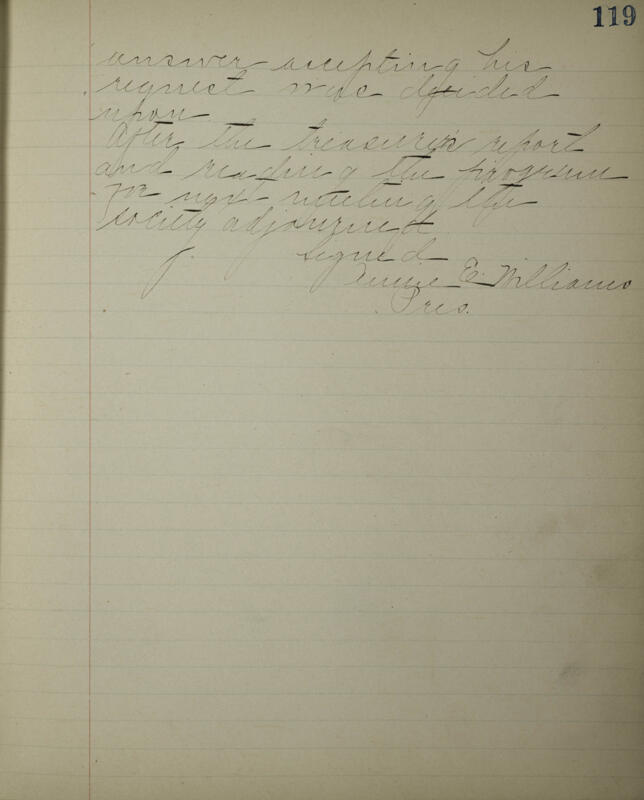 119
answer accepting his
request was decided
upon
After the treasurer's report
and reading the program
for next meeting the
society adjourned
Signed
Annie E. Williams
Pres.